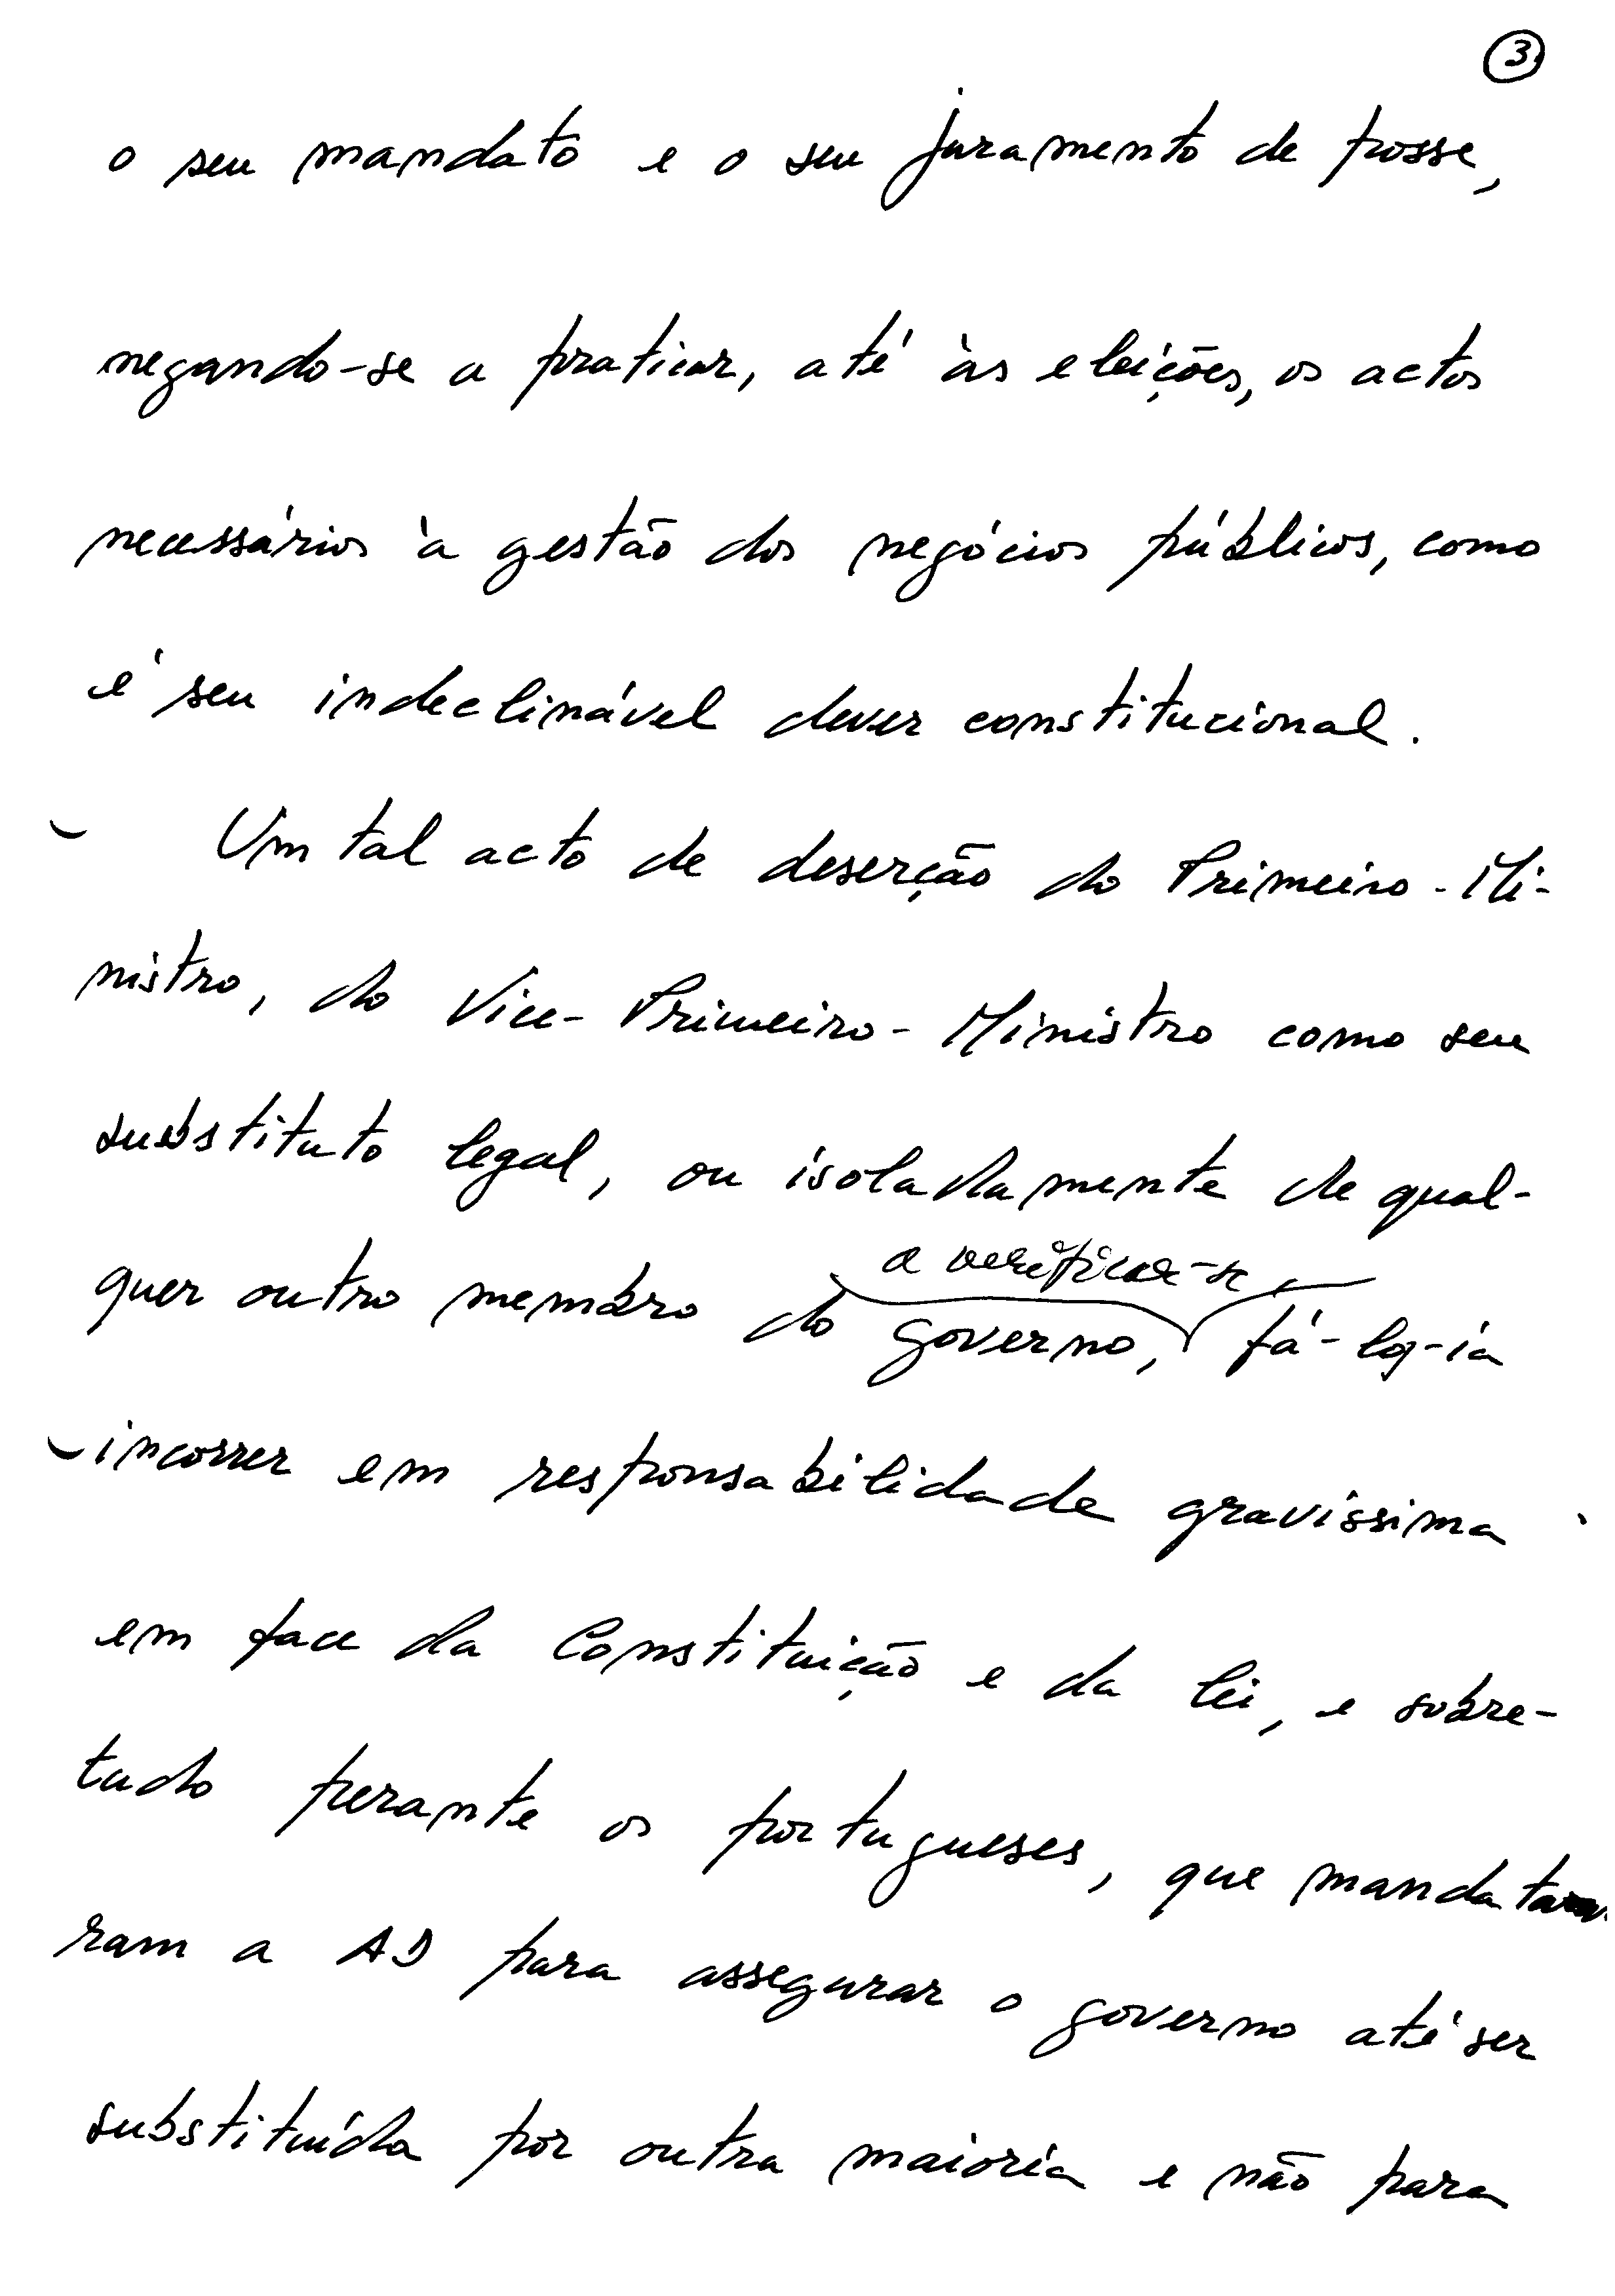 3
o seu mandato e o seu juramento de posse,
negando-se a praticar, até às eleições, os actos
necessários à gestão dos negócios públicos, como
é seu indeclinável dever constitucional.
Um tal acto de deserção do Primeiro-Mi-
nistro, do Vice-Primeiro-Ministro como seu
substituto legal, ou isoladamente de qual-
a verificar-se
quer outro membro do governo, fá-lo-ia
incorrer em responsabilidade gravíssima
em face da Constituição e da lei, e sobre-
tudo perante os portugueses, que mandata
ram a AD para assegurar o governo até ser
substituída por outra maioria e não para